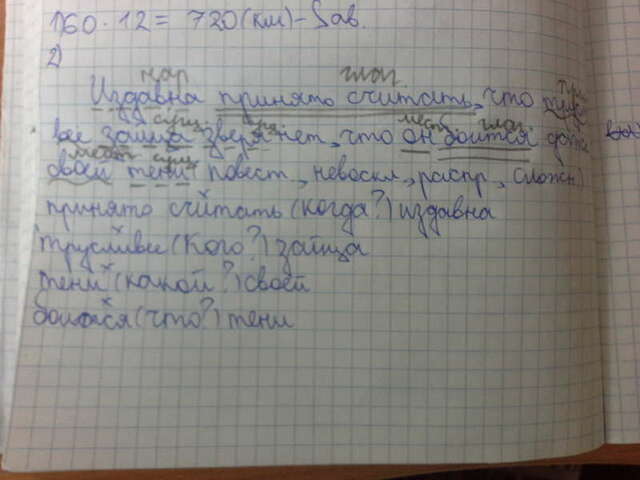 1)60·12=720(км)-Sав.
2)
нар глаг
Издавна принято считать, что трус
сущ. мест глаг.
вее зайца зверя нет, что он боится даже
мест сущ
своей тени (повест., невоскл., распр, сложн)
принято считать (когда?) издавна
трусливее (кого?) зайца
тени (какой?) своей
боится (что?) тени